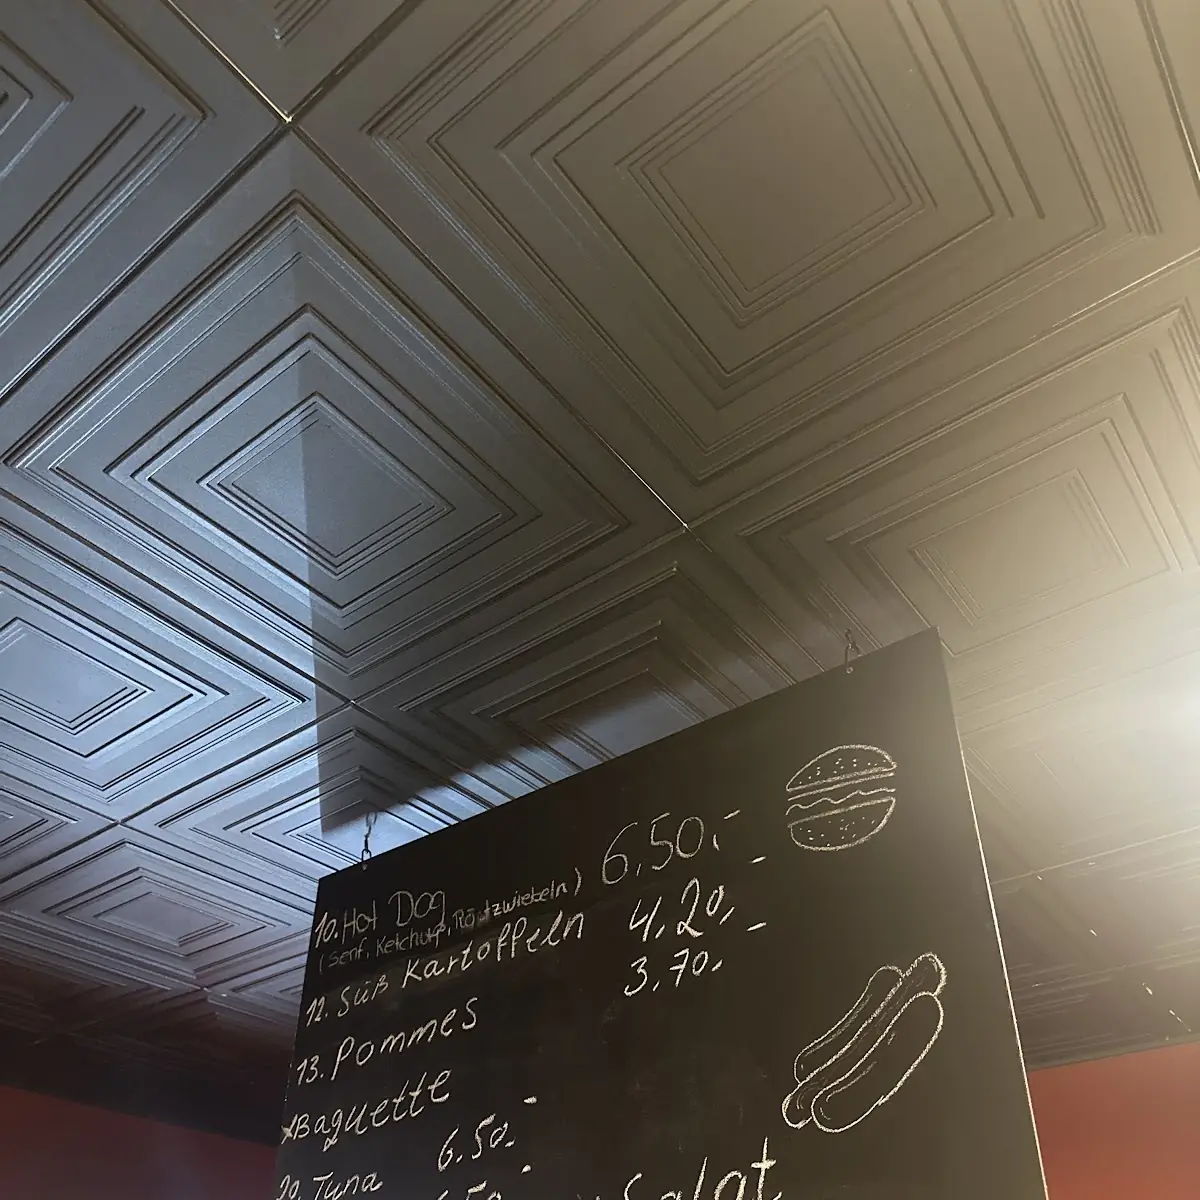 10. Hot Dog 6,50,-
(Senf, Ketchup, Röstzwiebeln)
12. Süß Kartoffeln 4,20,-
13. Pommes 3,70,-
Baguette
20. Tuna 6.50.-
Salat